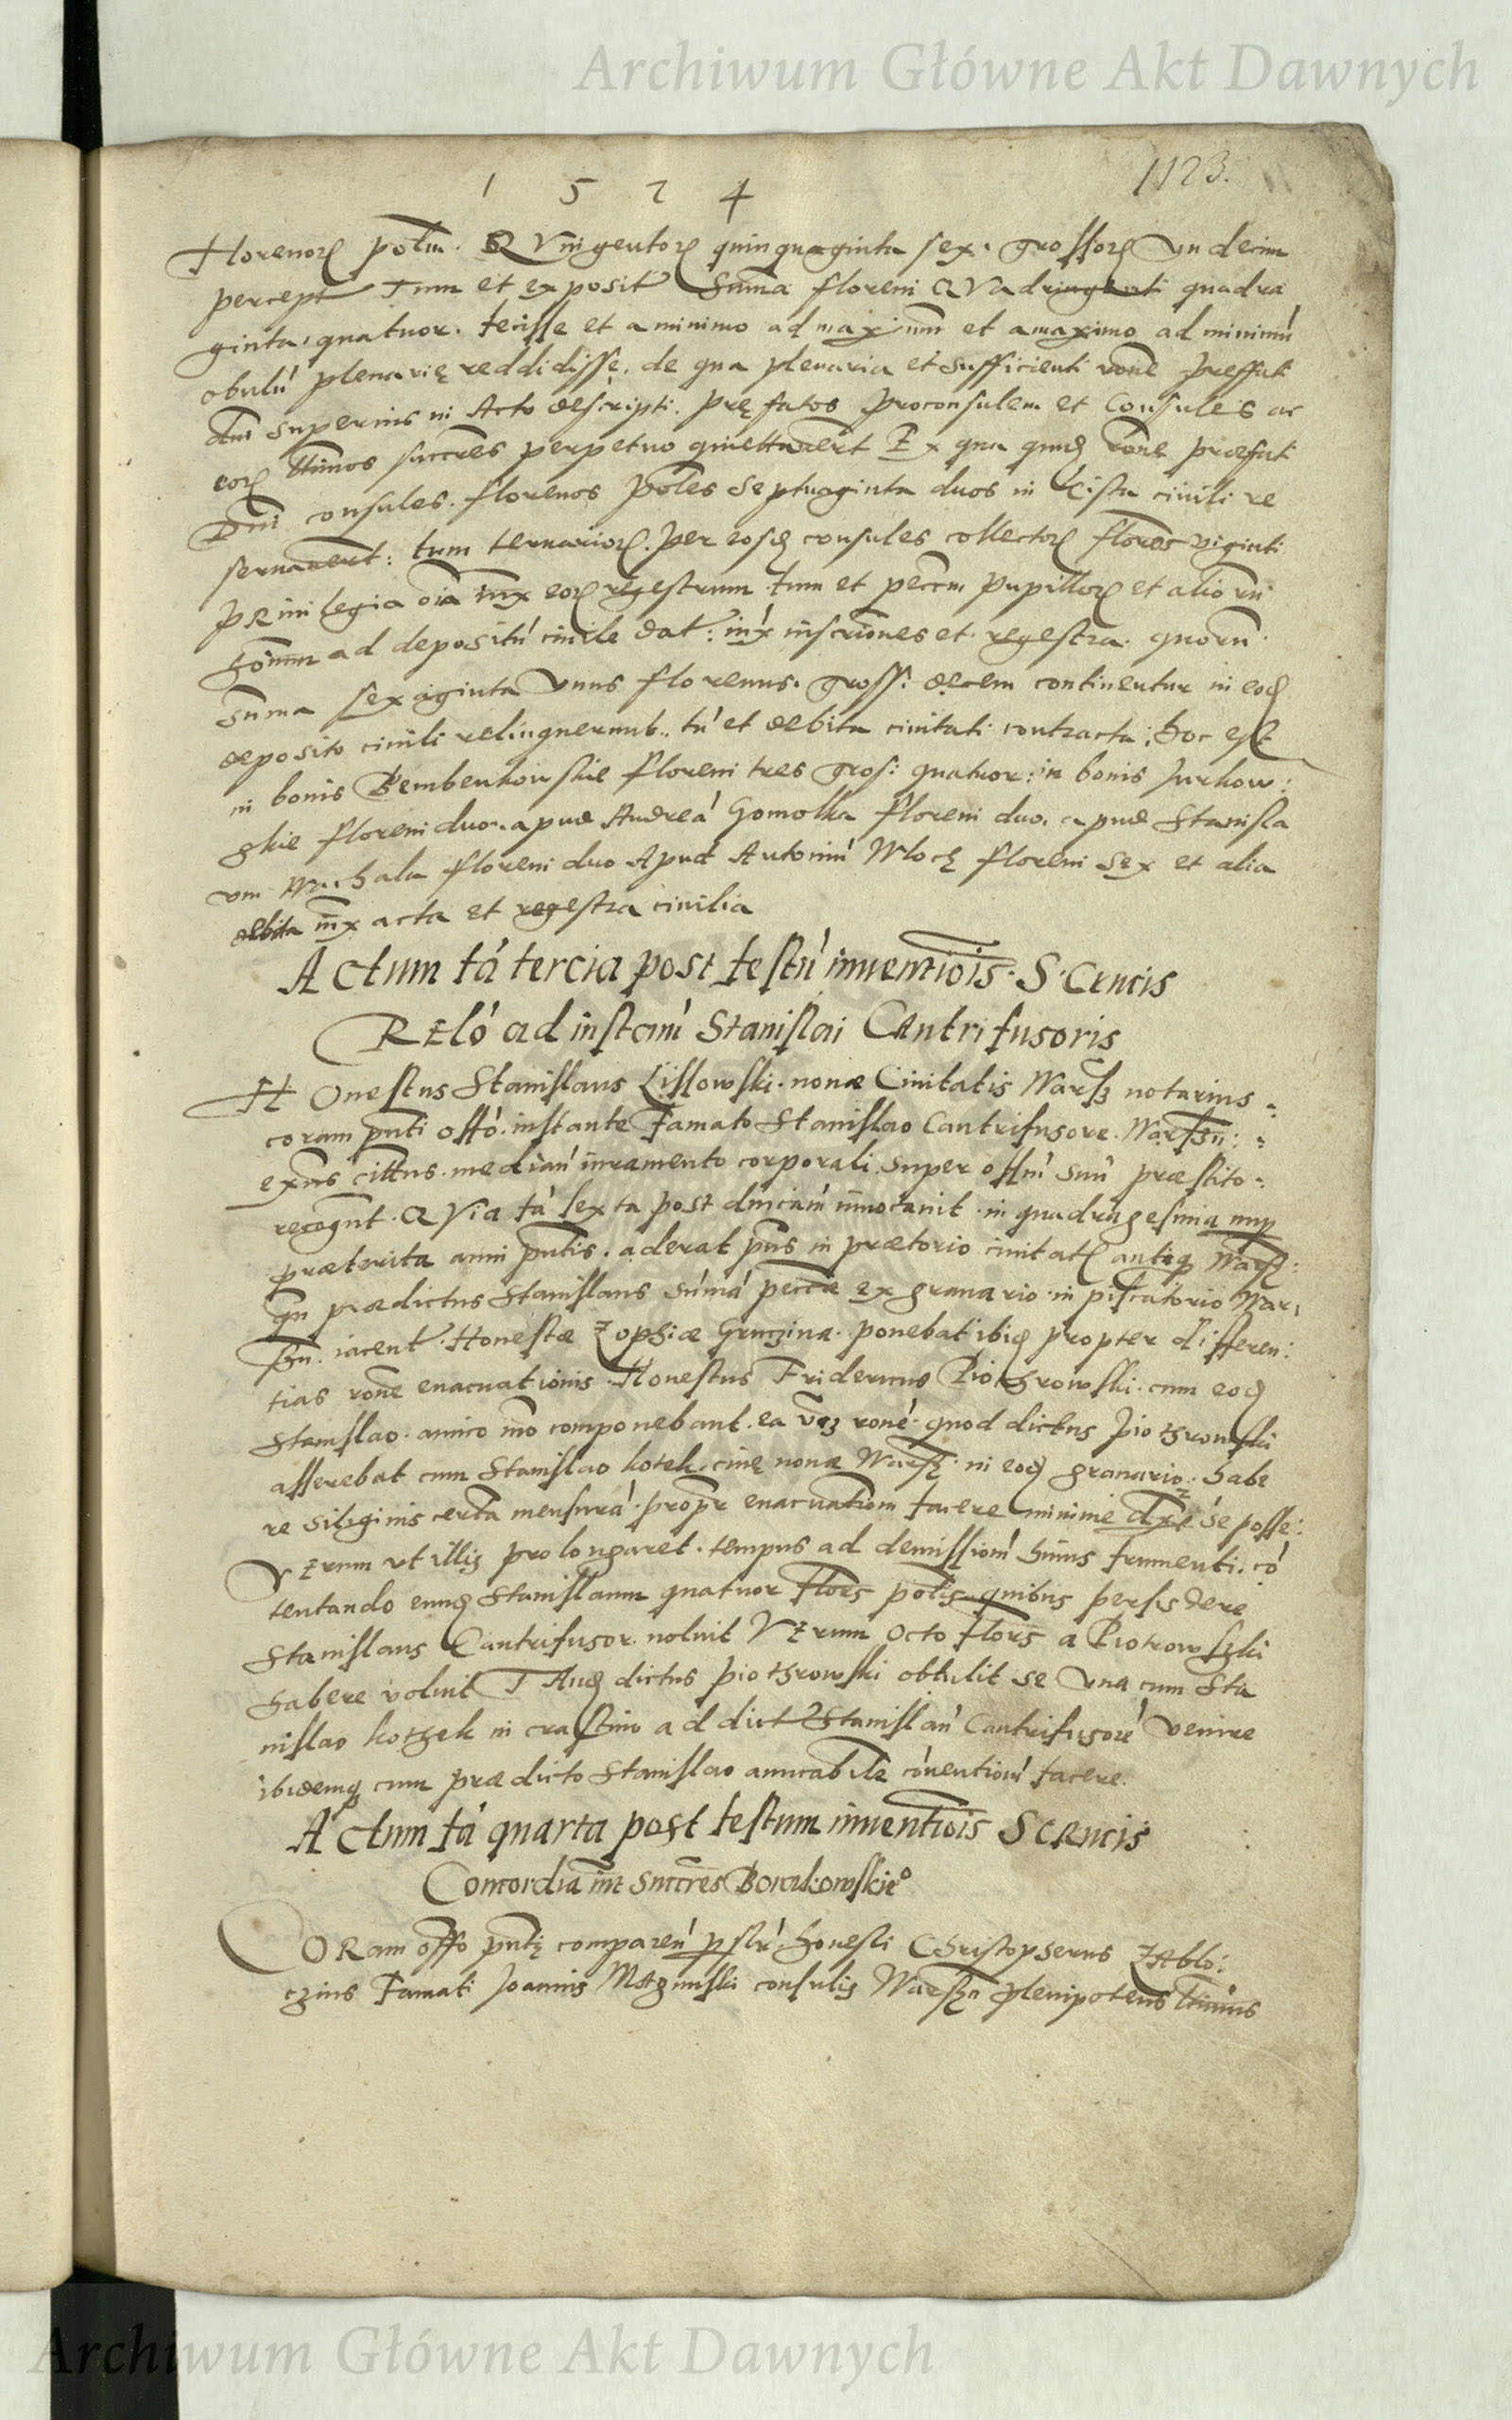 Archiwum Główne Akt Dawnych
1123.
1 5 7 4
Florenor polm. QVingentor quinquaginta sex. grossor undecim
percept Tum et exposit Summa floreni QVadringenti quadra
ginta quatuor. fecisse et a minimo ad maximum et a maximo ad minimu
obulu plenarię reddidisse. de qua plenaria et sufficienti rone Preffati
dni superius in Acto descripti. pręfatos Proconsulem et Consules ac
eor ltimos succres perpetuo quiettavert Ex qua quid rone præfati
Dni consules. florenos poles Septuaginta duos in Cista civili re
servavert: tum ternarior. per eosd consules collector flores viginti
PRivilegia oia iux eor regestrum tum et peccm Pupillor et aliorum
hominum ad depositu civile dat: iux inscriones et regestra. quorum
Suma sexaginta Unus florenus. gross: decem continentur in eod
deposito civili relinquerunt. tu et debita civitati contracta: hoc est
in bonis Bembenkowskie floreni tres gros: quatuor: in bonis Jurkow:
skie floreni duo. apud Andrea Gomolka floreni duo. apud Stanisla
um Machala floreni duo Apud Antoniu Wloch floreni Sex et alia
debita iux acta et regestra civilia
ACtum fa tercia post festu inventiois. S. Crucis
RElo ad instam Stanislai Cantrifusoris
HOnestus Stanislaus Lissowski. novæ Civitatis Warsz notarius
coram pnti offo. instante Famato Stanislao Cantrifusore. Warszn:
exns cittus. median iuramento corporali super offm sum præstito
recognt. QVia fa sexta post dnicam invocavit. in quadragesima nup
præterita anni pntis. aderat pns in prætorio civitat antiq Warsz:
qn prædictus Stanislaus suma pecciæ ex granario in piscatorio War:
szn. iacent. Honestæ Zophiæ Gruczina. ponebat ibid propter differen:
tias rone evacuationis. Honestus Fridericus Piothrowski. cum eod
Stanislao. amico mo componebant. ea vz rone. quod dictus Piothrowski
asserebat cum Stanislao kotek. civę novæ Warsz in eod granario: habe
re Siliginis certa mensura. propr evacuationem facere minime dxe se posse:
VErum ut illis prolongaret. tempus ad demissionem huius frumenti. co
tentando eund Stanislaum quatuor flors polis quibus persidere
Stanislaus Cantrifusor. noluit VErum Octo flors a Piotrowszki
habere voluit TAnd dictus piothrowski obtulit se una cum Sta
nislao kothek in crastino ad dict Stanislau Cantrifusore venire
ibidemq cum prædicto Stanislao amicabile coventiom facere.
ACtum fa quarta post festum inventiois S CRucis
Concordia int succres Borzikowskie
CORam offo pnti comparen pslr honesti Christopherus Zeblo:
czius Famati Joannis Mczinski consulis Warszn plenipotens ltimus
Archiwum Główne Akt Dawnych